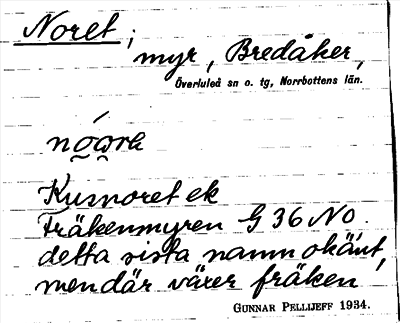 Noret;
myr, Bredåker,
Överluleå sn o. tg, Norrbottens län.
Kusnoret ek
Fräkenmyren G 36 NO.
detta sista namn okänt,
men där växer fräken
GUNNAR PELLIJEFF 1934.